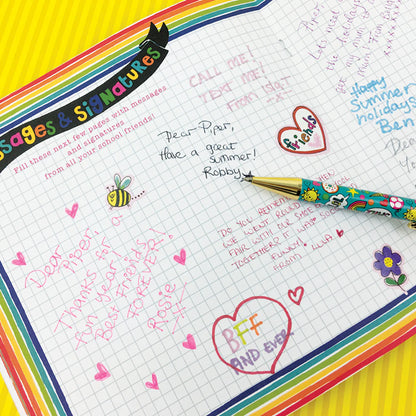 SSAGES & SIGNATURES
Fill these next few pages with messages
and signatures
from all your school friends!
CALL ME!
TEXT ME!
From Isla
Dear Piper,
Have a great
summer!
Robby
friends
Dear
Piper,
Thanks for a
fun year!
Best Friends
FOREVER!
Rosie
DO YOU REMEMBER
WE WENT ROUND
FAIR WITH
TOGETHER? IT WAS
FUNNY!
FROM
BFF
AND EVER
Piper,
the holidays
my mum
Happy
Summer
holidays
Ben
Dear